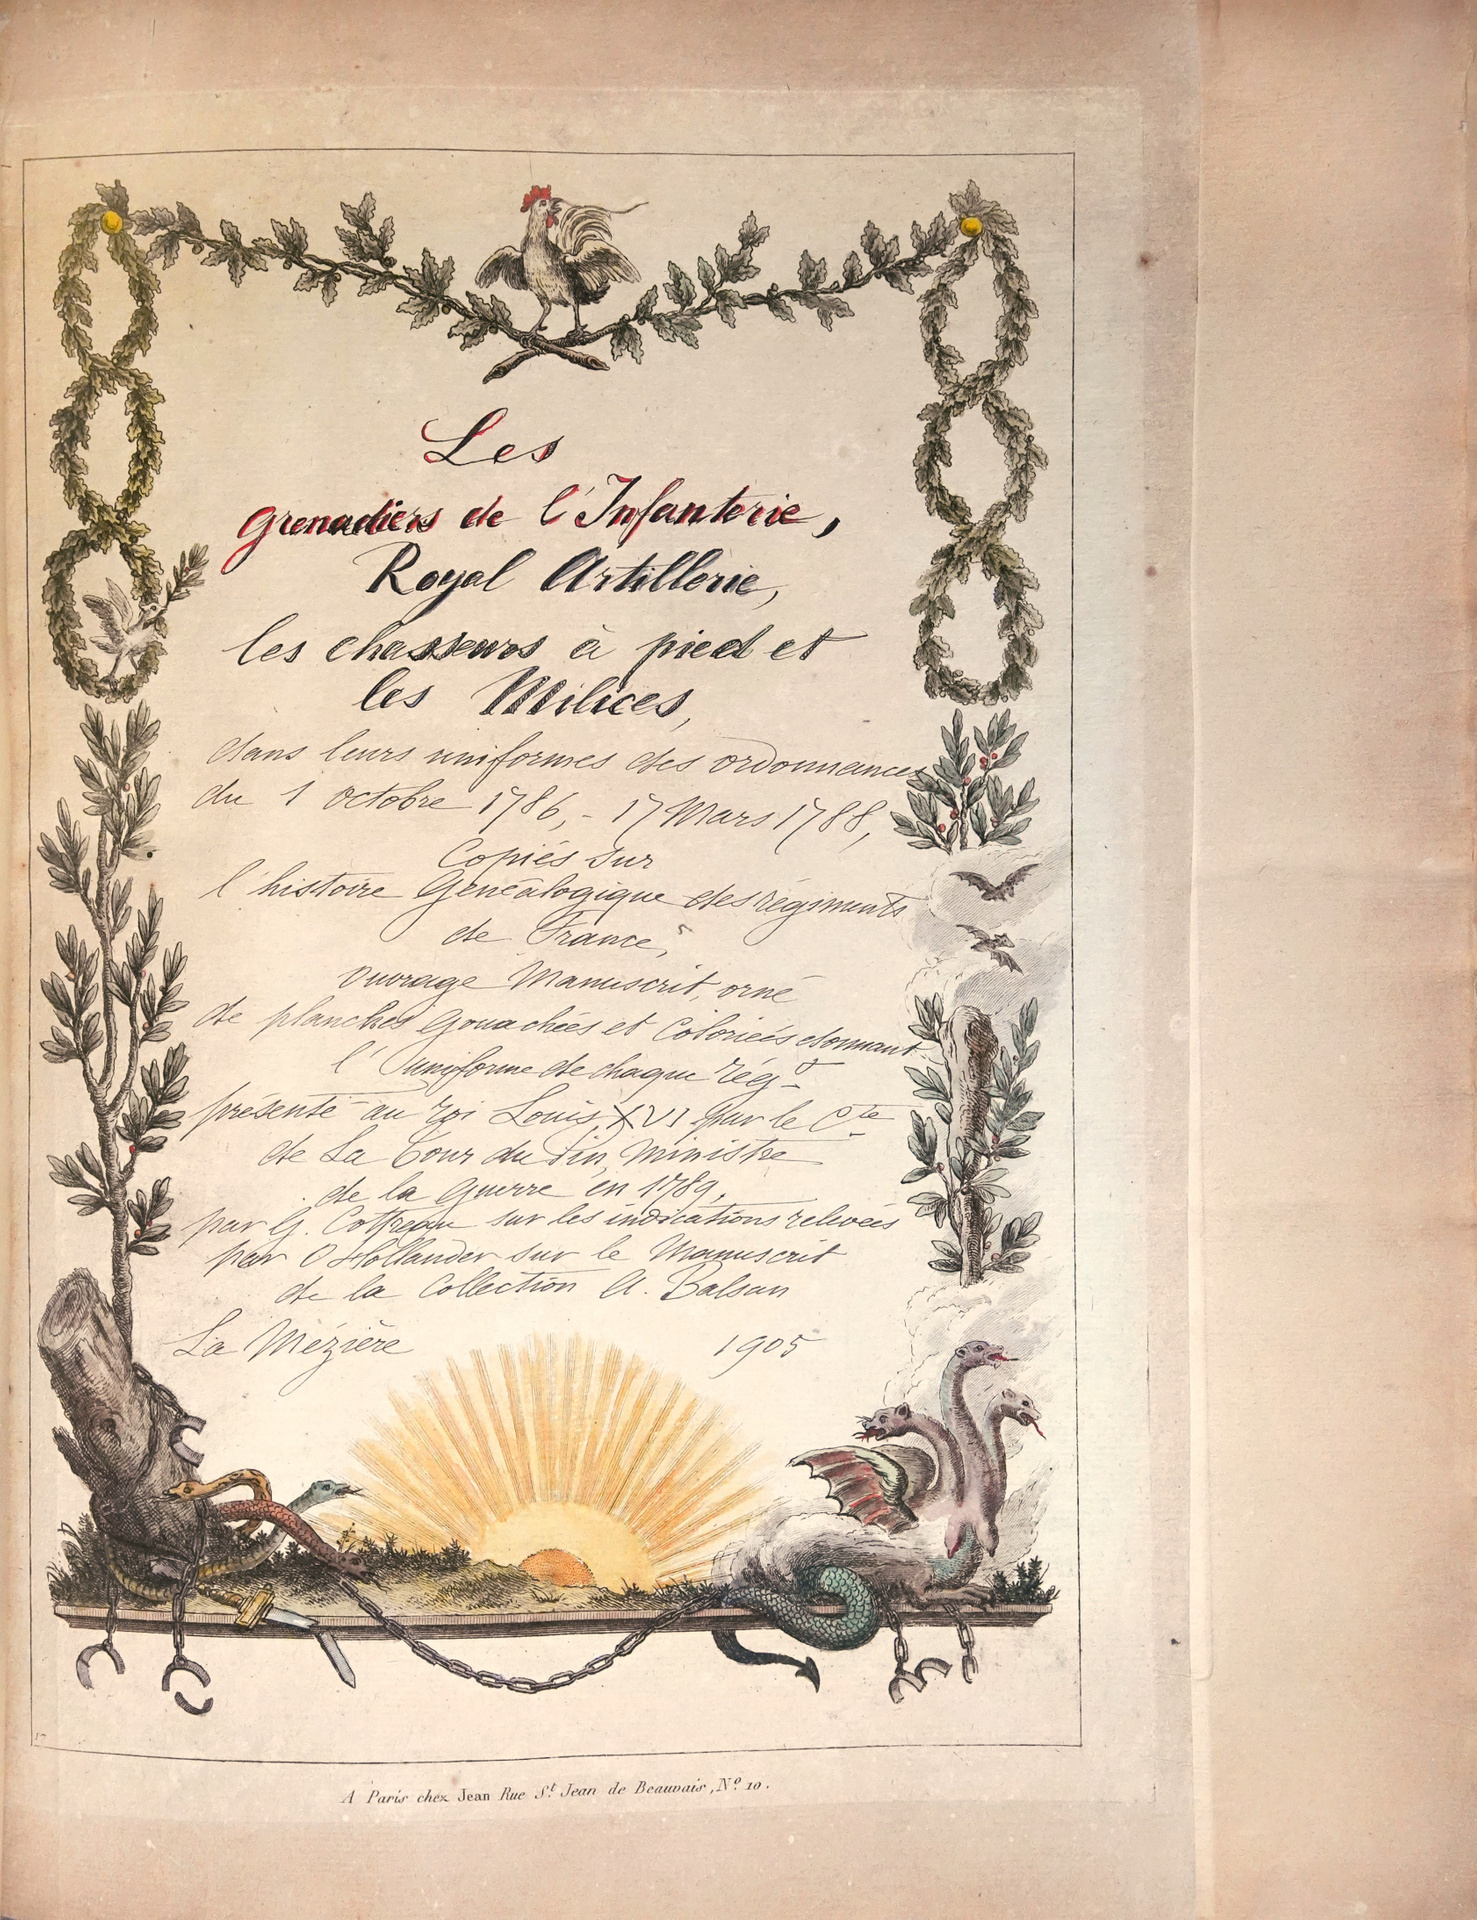 Les
Grenadiers de l'Infanterie,
Royal Artillerie,
les chasseurs à pied et
les Milices,
dans leurs uniformes des ordonnances
du 1 octobre 1786, - 17 Mars 1788,
Copiés sur
l'histoire Généalogique des régiments
de France,
ouvrage Manuscrit, orné
de planches Gouachées et Coloriées donnant
l'uniforme de chaque rég.t
présenté au roi Louis XVI par le Cte
de La Tour du Pin, Ministre
de la Guerre en 1789,
par G. Cottreau sur les indications relevées
par O Hollander sur le Manuscrit
de la Collection A. Balsan
La Mézière 1905
17
A Paris chez Jean Rue St. Jean de Beauvais, No. 10.